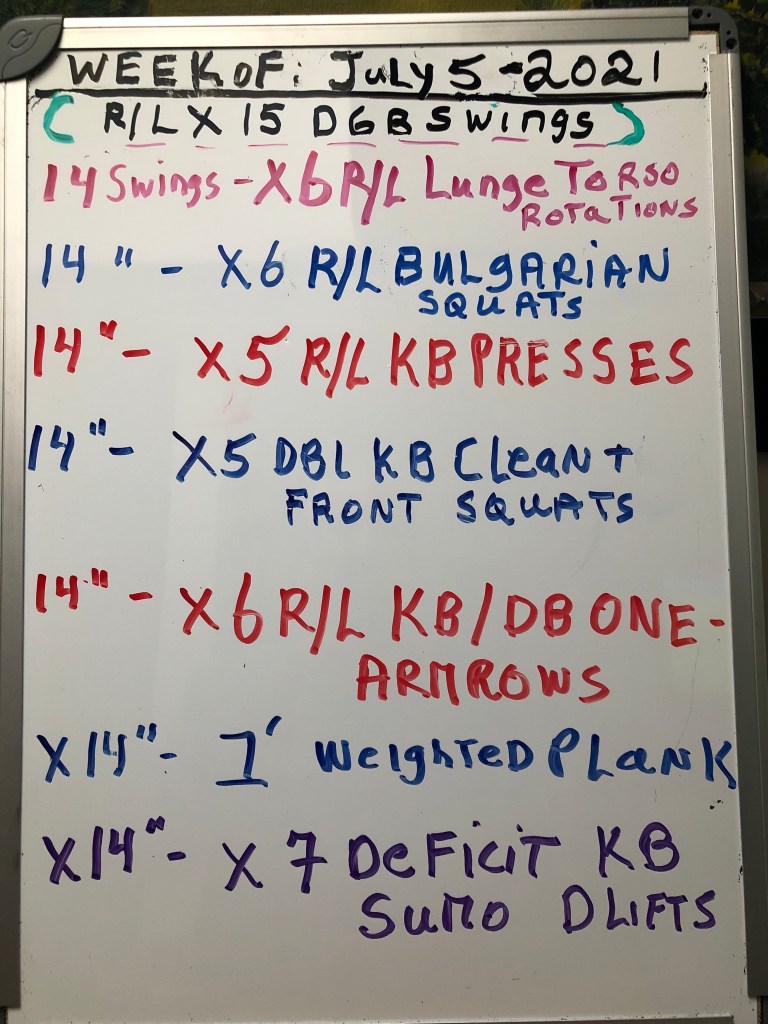 WEEK OF: JULY 5-2021
( R/L X 15 DGB SWings )
14 Swings - X6 R/L Lunge Torso
ROTATIONS
14 " - X6 R/L BULgARiAN
SQUATS
14 " - X5 R/L KB PRESSES
14 " - X5 DBL KB Clean +
FRONT SQUATS
14 " - X6 R/L KB/DB ONE-
ARM ROWS
X14 " - 1' WeighTeD PLanK
X14 " - X 7 DeFiciT KB
SuMO DLIFTS